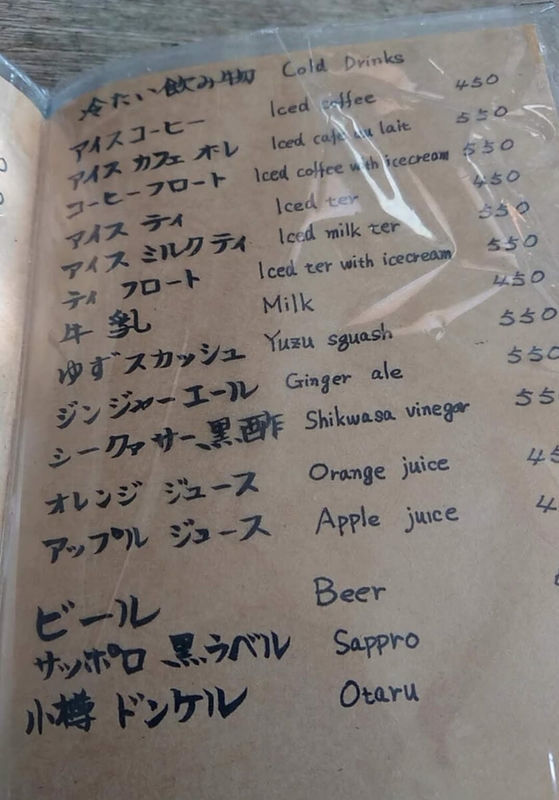 冷たい飲み物 Cold Drinks
アイスコーヒー Iced coffee 450
アイス カフェ オレ Iced cafe au lait 550
コーヒーフロート Iced coffee with icecream 550
アイス ティ Iced ter 450
アイス ミルク ティ Iced milk ter 550
ティ フロート Iced ter with icecream 550
牛乳 Milk 450
ゆずスカッシュ Yuzu sguash 550
ジンジャーエール Ginger ale 550
シークァサー黒酢 Shikwasa vinegar 55
オレンジ ジュース Orange juice 45
アップル ジュース Apple juice 4
ビール Beer
サッポロ 黒ラベル Sappro
小樽 ドンケル Otaru